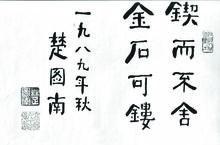 鍥而不舍
金石可鏤
一九八九年秋
楚图南